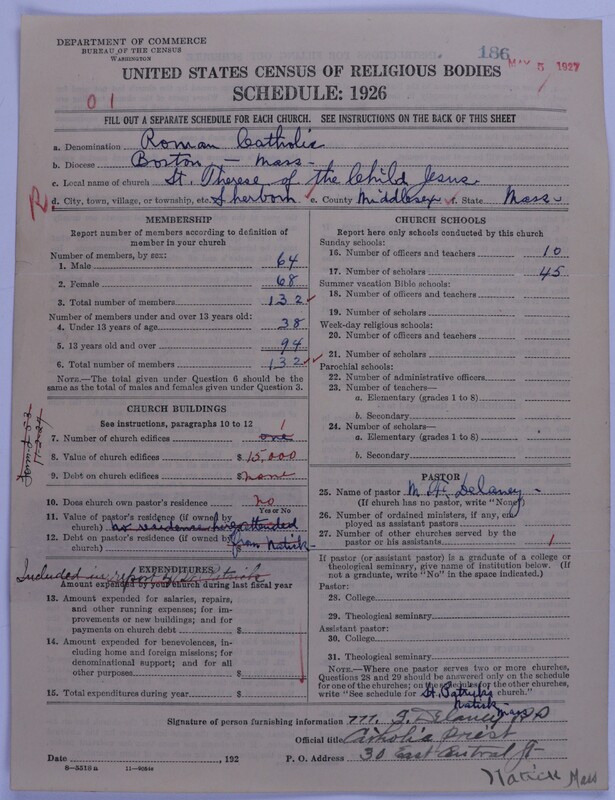 DEPARTMENT OF COMMERCE
BUREAU OF THE CENSUS
WASHINGTON
186
MAY 5 1927
UNITED STATES CENSUS OF RELIGIOUS BODIES
SCHEDULE: 1926
01
FILL OUT A SEPARATE SCHEDULE FOR EACH CHURCH. SEE INSTRUCTIONS ON THE BACK OF THIS SHEET
a. Denomination Roman Catholic
b. Diocese Boston - Mass -
c. Local name of church St. Therese of the Child Jesus
R d. City, town, village, or township, etc. Sherborn e. County Middlesex f. State Mass.
MEMBERSHIP
Report number of members according to definition of member in your church
Number of members, by sex:
1. Male 64
2. Female 68
3. Total number of members 132
Number of members under and over 13 years old:
4. Under 13 years of age 38
5. 13 years old and over 94
6. Total number of members 132
NOTE.—The total given under Question 6 should be the same as the total of males and females given under Question 3.
CHURCH BUILDINGS
See instructions, paragraphs 10 to 12
7. Number of church edifices one 1
8. Value of church edifices $ 15,000
9. Debt on church edifices $ none
10. Does church own pastor's residence no
Yes or No
11. Value of pastor's residence (if owned by church) no residence here attended
12. Debt on pastor's residence (if owned by church) $ from Natick
EXPENDITURES
Included in report by St. Patrick
Amount expended by your church during last fiscal year
13. Amount expended for salaries, repairs, and other running expenses; for improvements or new buildings; and for payments on church debt $
14. Amount expended for benevolences, including home and foreign missions; for denominational support; and for all other purposes $
15. Total expenditures during year $
CHURCH SCHOOLS
Report here only schools conducted by this church
Sunday schools:
16. Number of officers and teachers 10
17. Number of scholars 45
Summer vacation Bible schools:
18. Number of officers and teachers
19. Number of scholars
Week-day religious schools:
20. Number of officers and teachers
21. Number of scholars
Parochial schools:
22. Number of administrative officers
23. Number of teachers—
a. Elementary (grades 1 to 8)
b. Secondary
24. Number of scholars—
a. Elementary (grades 1 to 8)
b. Secondary
PASTOR
25. Name of pastor M. F. Delaney -
(If church has no pastor, write "None")
26. Number of ordained ministers, if any, employed as assistant pastors
27. Number of other churches served by the pastor or his assistants 1
If pastor (or assistant pastor) is a graduate of a college or theological seminary, give name of institution below. (If not a graduate, write "No" in the space indicated.)
Pastor:
28. College
29. Theological seminary
Assistant pastor:
30. College
31. Theological seminary
NOTE.—Where one pastor serves two or more churches, Questions 28 and 29 should be answered only on the schedule for one of the churches; on the schedules for the other churches, write "See schedule for St. Patrick's church."
Natick Mass
Signature of person furnishing information M. F. Delaney
Official title Catholic Priest
Date , 192
P. O. Address 30 East Central St
8—5518a
Natick Mass